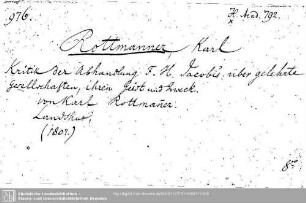 976.
H. Acad. 792.
Rottmanner Karl
Kritik der Abhandlung F. H. Jacobis, über gelehrte
Gesellschaften, ihren Geist und Zweck.
von Karl Rottmañer.
Landshut,
(1808.)
8°
Sächsische Landesbibliothek -
Staats- und Universitätsbibliothek Dresden